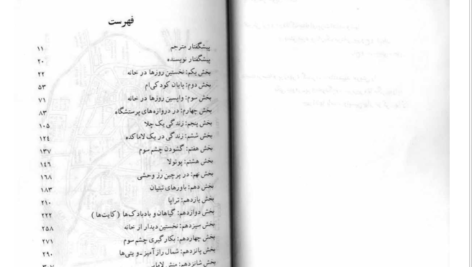 فهرست
پیشگفتار مترجم ۱۱
پیشگفتار نویسنده ۲۰
بخش یکم: نخستین روزها در خانه ۲۲
بخش دوم: پایان کودکی‌ام ۵۳
بخش سوم: واپسین روزها در خانه ۷۱
بخش چهارم: در دروازه‌های پرستشگاه ۸۳
بخش پنجم: زندگی یک چلا ۱۰۵
بخش ششم: زندگی در یک لاماکده ۱۲۴
بخش هفتم: گشودن چشم سوم ۱۳۷
بخش هشتم: پوتولا ۱۴۶
بخش نهم: در پرچین رز وحشی ۱۶۸
بخش دهم: باورهای تبتیان ۱۸۳
بخش یازدهم: تراپا ۲۱۰
بخش دوازدهم: گیاهان و بادبادک‌ها (کایت‌ها) ۲۲۲
بخش سیزدهم: نخستین دیدار از خانه ۲۵۸
بخش چهاردهم: بکارگیری چشم سوم ۲۷۱
بخش پانزدهم: شمال رازآمیز - و یتی‌ها ۲۹۰
بخش شانزدهم: